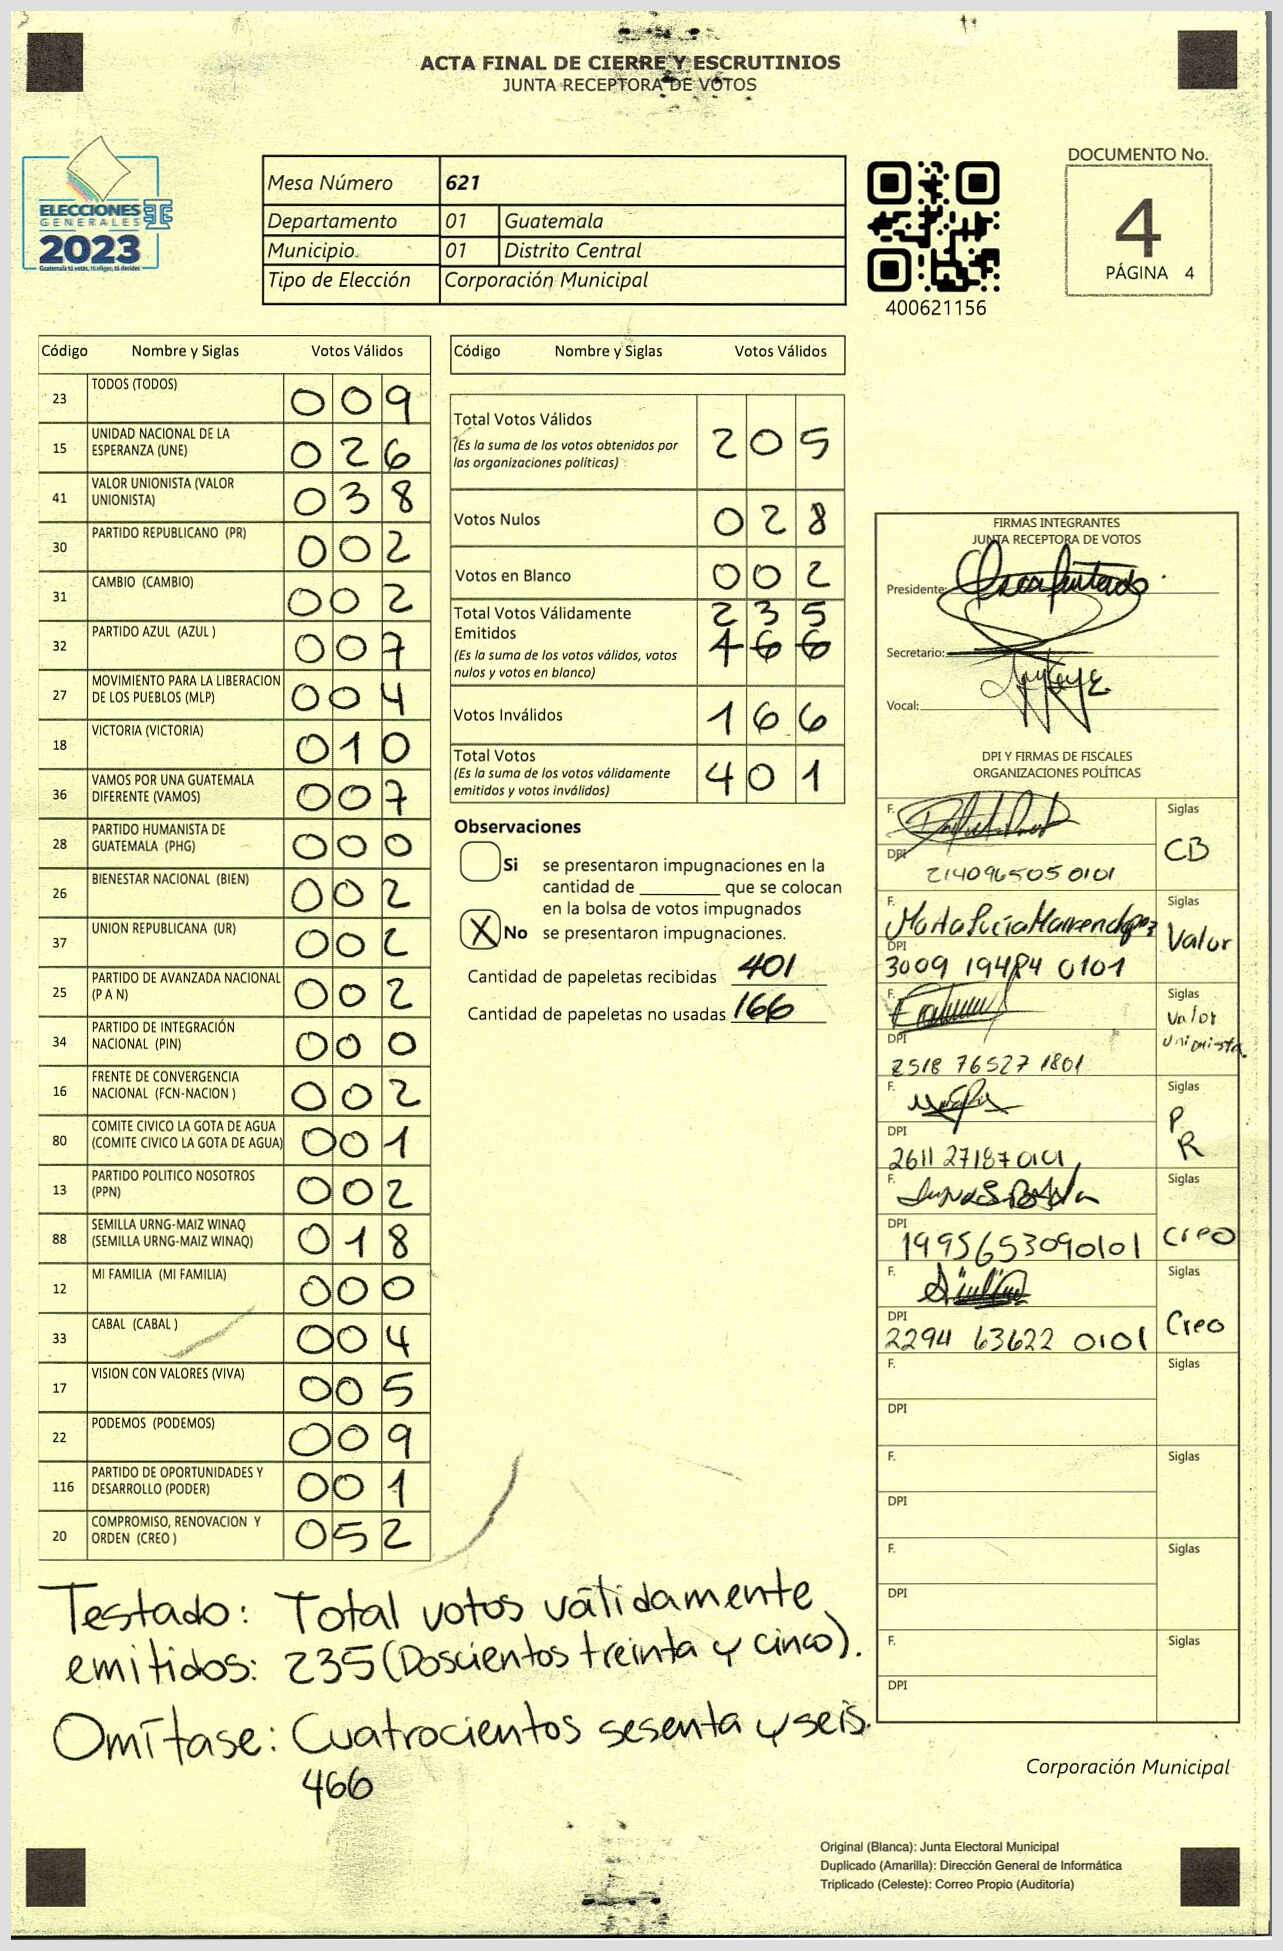 ACTA FINAL DE CIERRE Y ESCRUTINIOS
JUNTA RECEPTORA DE VOTOS
ELECCIONES
GENERALES
2023
Guatemala tú votas, tú eliges, tú decides
Mesa Número 621
Departamento 01 Guatemala
Municipio. 01 Distrito Central
Tipo de Elección Corporación Municipal
400621156
DOCUMENTO No.
4
PÁGINA 4
Código Nombre y Siglas Votos Válidos
23 TODOS (TODOS) 009
15 UNIDAD NACIONAL DE LA ESPERANZA (UNE) 026
41 VALOR UNIONISTA (VALOR UNIONISTA) 038
30 PARTIDO REPUBLICANO (PR) 002
31 CAMBIO (CAMBIO) 002
32 PARTIDO AZUL (AZUL ) 007
27 MOVIMIENTO PARA LA LIBERACION DE LOS PUEBLOS (MLP) 004
18 VICTORIA (VICTORIA) 010
36 VAMOS POR UNA GUATEMALA DIFERENTE (VAMOS) 007
28 PARTIDO HUMANISTA DE GUATEMALA (PHG) 000
26 BIENESTAR NACIONAL (BIEN) 002
37 UNION REPUBLICANA (UR) 002
25 PARTIDO DE AVANZADA NACIONAL (P A N) 002
34 PARTIDO DE INTEGRACIÓN NACIONAL (PIN) 000
16 FRENTE DE CONVERGENCIA NACIONAL (FCN-NACION ) 002
80 COMITE CIVICO LA GOTA DE AGUA (COMITE CIVICO LA GOTA DE AGUA) 001
13 PARTIDO POLITICO NOSOTROS (PPN) 002
88 SEMILLA URNG-MAIZ WINAQ (SEMILLA URNG-MAIZ WINAQ) 018
12 MI FAMILIA (MI FAMILIA) 000
33 CABAL (CABAL ) 004
17 VISION CON VALORES (VIVA) 005
22 PODEMOS (PODEMOS) 009
116 PARTIDO DE OPORTUNIDADES Y DESARROLLO (PODER) 001
20 COMPROMISO, RENOVACION Y ORDEN (CREO ) 052
Código Nombre y Siglas Votos Válidos
Total Votos Válidos 205
(Es la suma de los votos obtenidos por
las organizaciones políticas)
Votos Nulos 028
Votos en Blanco 002
Total Votos Válidamente 235
Emitidos 466
(Es la suma de los votos válidos, votos
nulos y votos en blanco)
Votos Inválidos 166
Total Votos 401
(Es la suma de los votos válidamente
emitidos y votos inválidos)
Observaciones
Si se presentaron impugnaciones en la
cantidad de ________ que se colocan
en la bolsa de votos impugnados
X No se presentaron impugnaciones.
Cantidad de papeletas recibidas 401
Cantidad de papeletas no usadas 166
FIRMAS INTEGRANTES
JUNTA RECEPTORA DE VOTOS
Presidente:
Secretario:
Vocal:
DPI Y FIRMAS DE FISCALES
ORGANIZACIONES POLÍTICAS
F. Siglas
CB
DPI 214096505 0101
F. Siglas
Valor
DPI
3009 19484 0101
F. Siglas
Valor
unionista
DPI
2518 76527 1801
F. Siglas
P
R
DPI
2611 27187 0101
F. Siglas
Creo
DPI
1995653090101
F. Siglas
Creo
DPI
2294 63622 0101
F. Siglas
DPI
F. Siglas
DPI
F. Siglas
DPI
F. Siglas
DPI
Testado: Total votos válidamente
emitidos: 235 (Doscientos treinta y cinco).
Omítase: Cuatrocientos sesenta y seis.
466
Corporación Municipal
Original (Blanca): Junta Electoral Municipal
Duplicado (Amarilla): Dirección General de Informática
Triplicado (Celeste): Correo Propio (Auditoría)